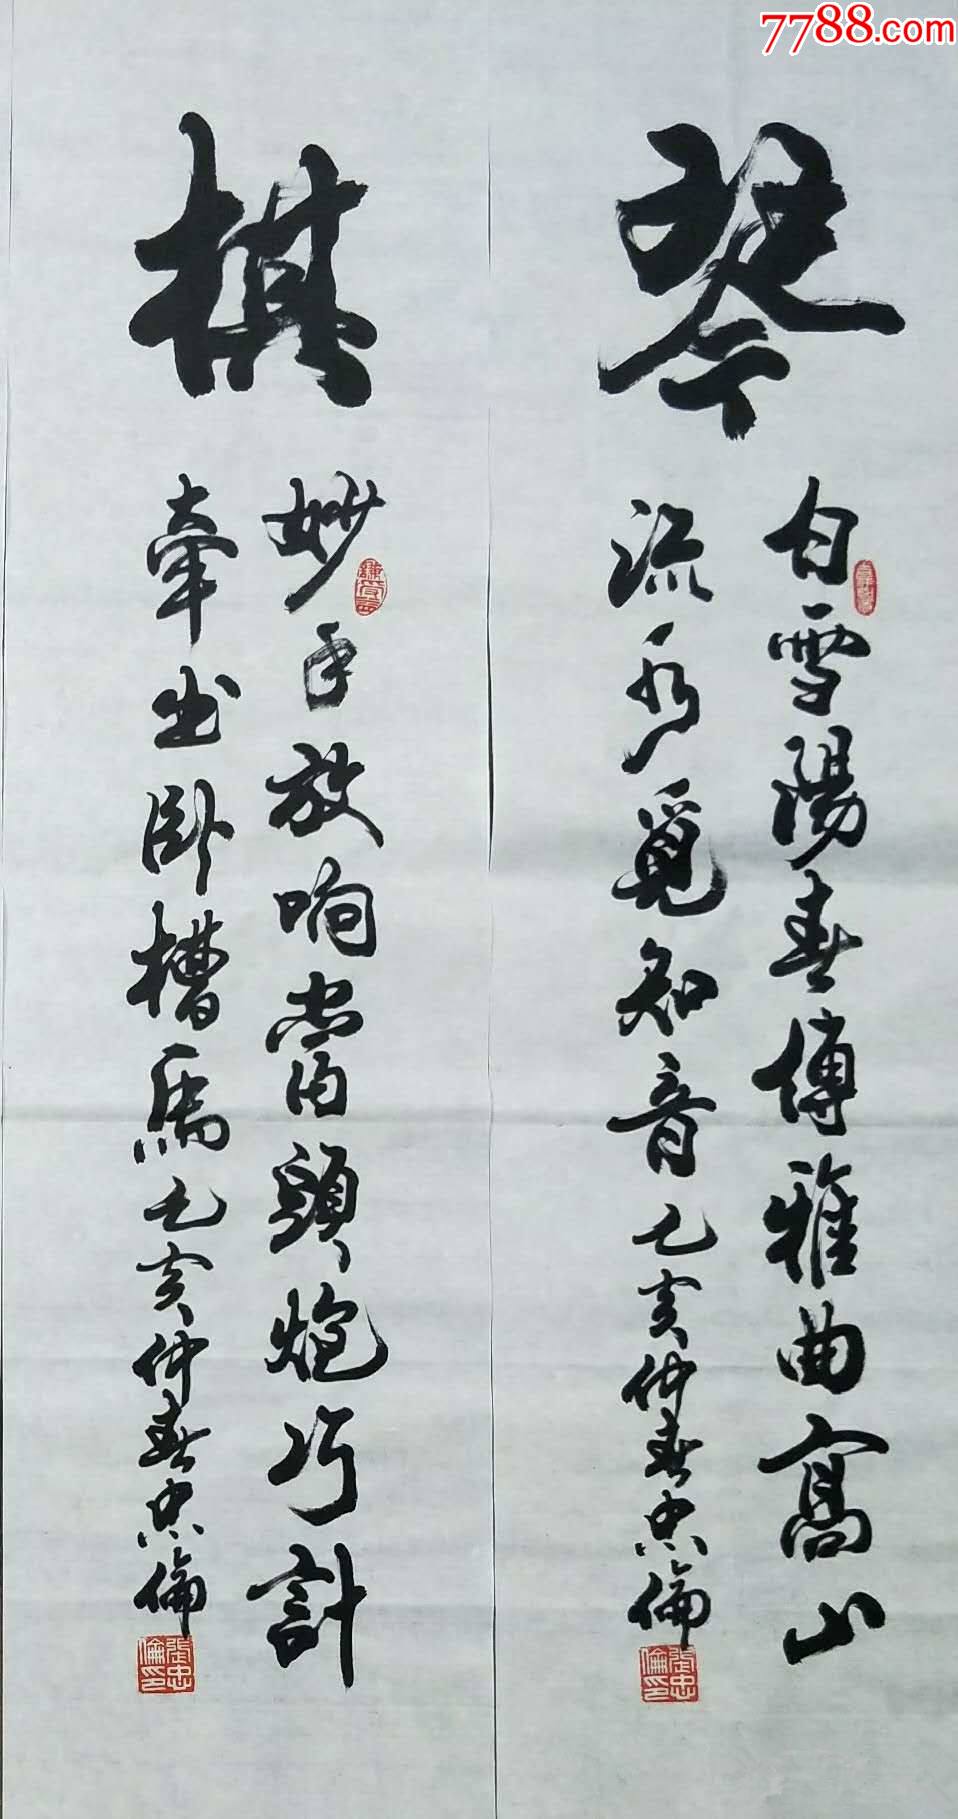 7788.com
琴
白雪陽春博雅曲高山
流水覓知音乙亥仲春忠倫
張忠倫印
棋
妙手放响當頭炮巧計
牽出卧槽馬乙亥仲春忠倫
張忠倫印